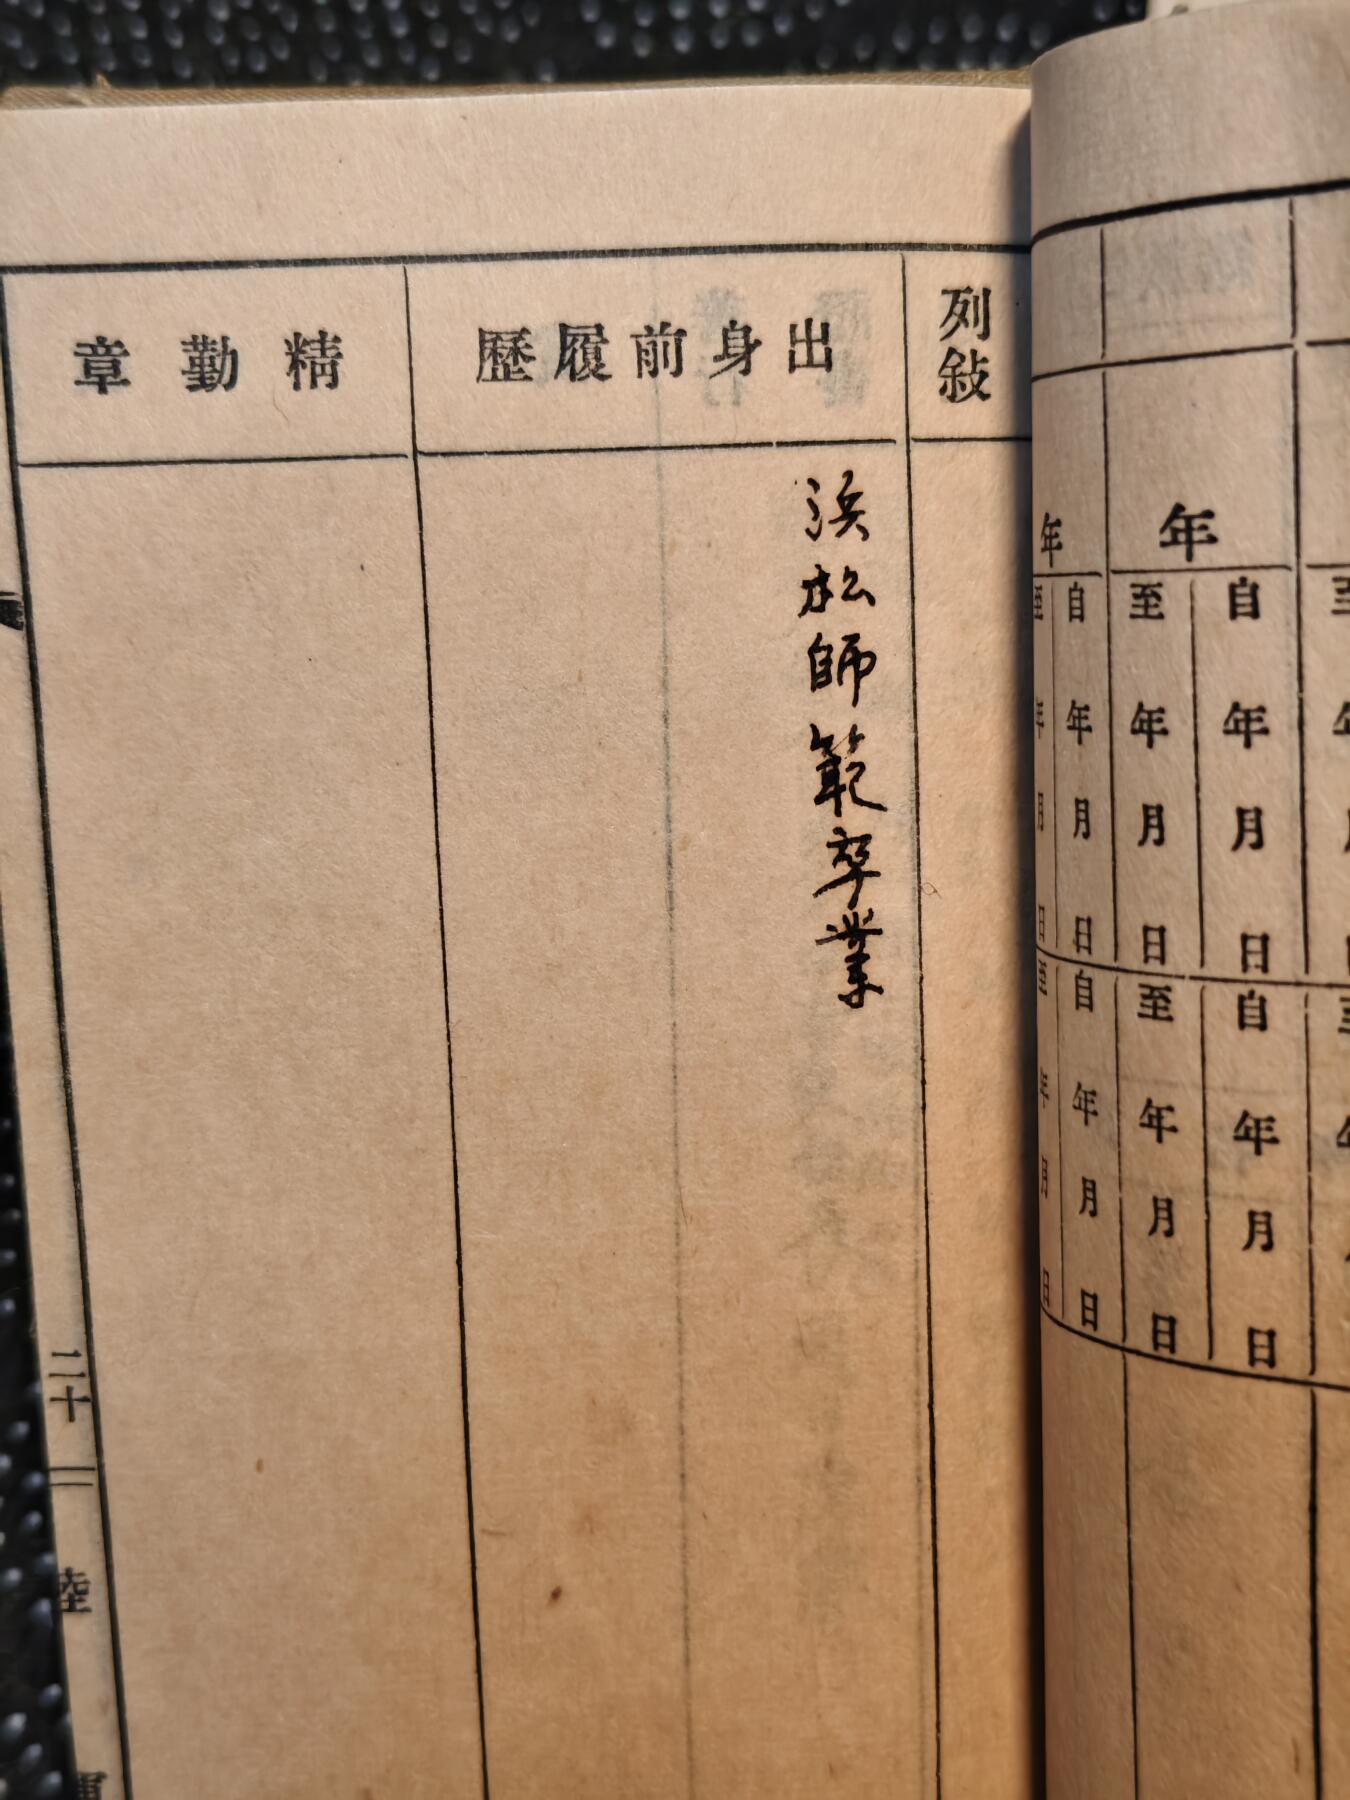 年
自年月日
至年月日
年
自年月日
至年月日
自年月日
至年月日
自年月日
至年月日
列敍
出身前履歷
浜松師範卒業
精勤章
二十二
陸軍